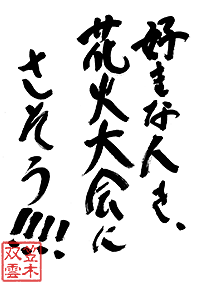 好きな人を、
花火大会に
さそう!!!!
笠木
双雲